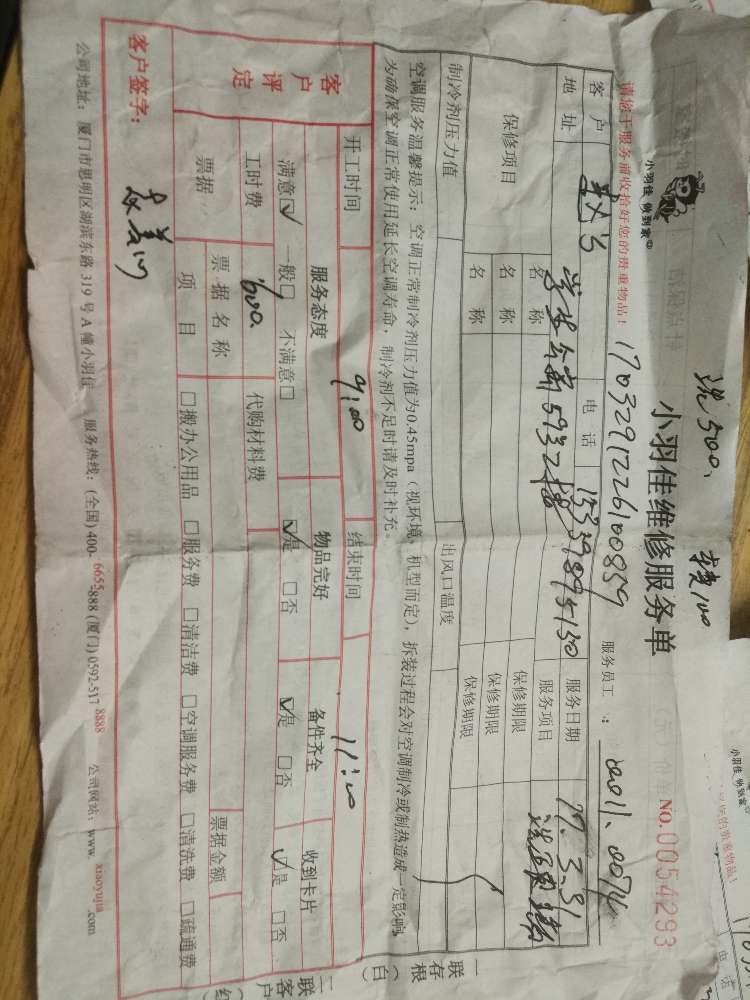 洗500、 接100
小羽佳 做到家
小羽佳维修服务单
No.0054293
请您于服务前收拾好您的贵重物品！ 1703291226100859 服务员工：
客户 电话 15339895130 服务日期 17.3.31
地址 5932楼 服务项目
保修项目 名称 保修期限
名称 保修期限
名称 保修期限
制冷剂压力值 出风口温度
空调服务温馨提示：空调正常制冷剂压力值为0.45mpa（视环境、机型而定），拆装过程会对空调制冷或制热造成一定影响，
为确保空调正常使用延长空调寿命，制冷剂不足时请及时补充。
开工时间 9:00 结束时间 11:00
客户评定 服务态度 物品完好 备件齐全 收到卡片
满意☑ 一般□ 不满意□ ☑是 □否 ☑是 □否 ☑是 □否
工时费 600. 代购材料费
票据 票据名称 票据金额
项目 □搬办公用品 □服务费 □清洁费 □空调服务费 □清洗费 □疏通费
客户签字：
公司地址：厦门市思明区湖滨东路319号A幢小羽佳 服务热线：(全国)400-6655-888 (厦门)0592-517 8888 公司网站：www.xiaoyujia.com
一联存根（白）
二联客户
小羽佳 做到家